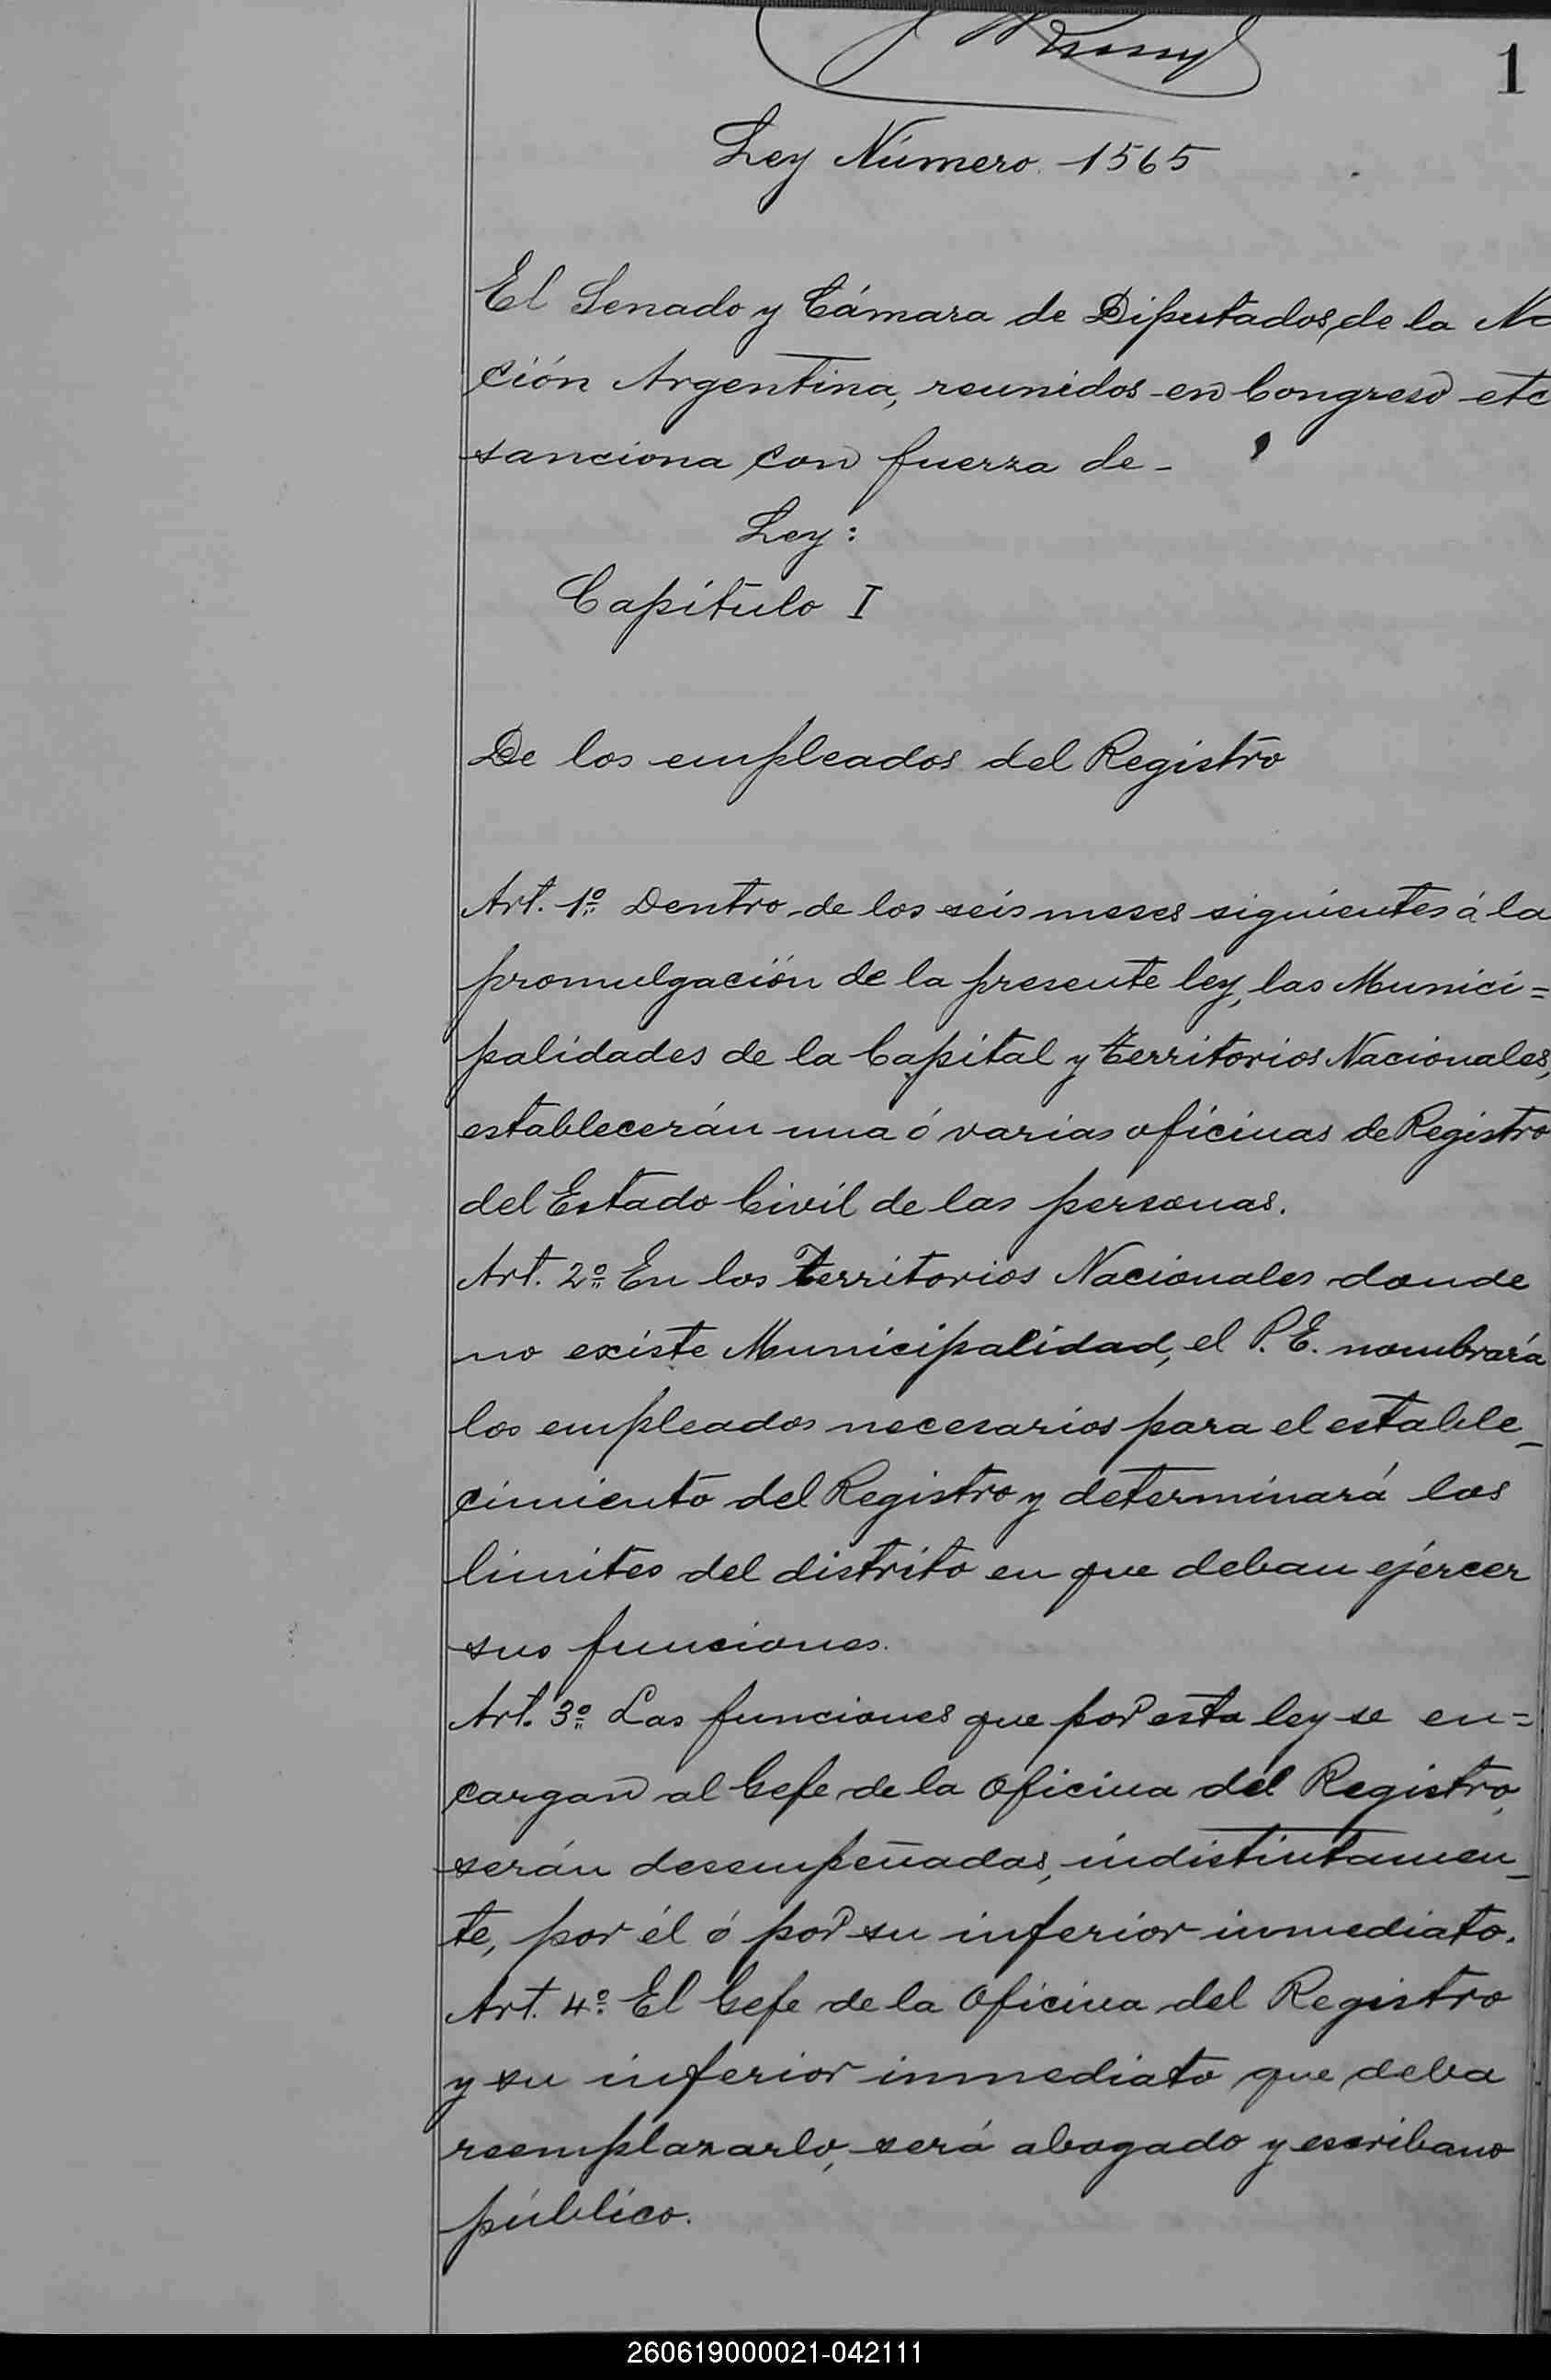 1
Ley Número 1565
El Senado y Cámara de Diputados, de la Na
ción Argentina, reunidos en Congreso etc
sanciona con fuerza de-
Ley:
Capítulo I
De los empleados del Registro
Art. 1º Dentro de los seis meses siguientes á la
promulgación de la presente ley, las Munici=
palidades de la Capital y Territorios Nacionales,
establecerán una ó varias oficinas de Registro
del Estado Civil de las personas.
Art. 2º En los Territorios Nacionales donde
no existe Municipalidad, el P. E. nombrará
los empleados necesarios para el estable-
cimiento del Registro y determinará los
límites del distrito en que deban ejercer
sus funciones.
Art. 3º Las funciones que por esta ley se en=
cargan al Gefe de la Oficina del Registro,
serán desempeñadas, indistintamen-
te, por él ó por su inferior inmediato.
Art. 4º El Gefe de la Oficina del Registro
y su inferior inmediato que deba
reemplazarlo, será abogado y escribano
público.
260619000021-042111